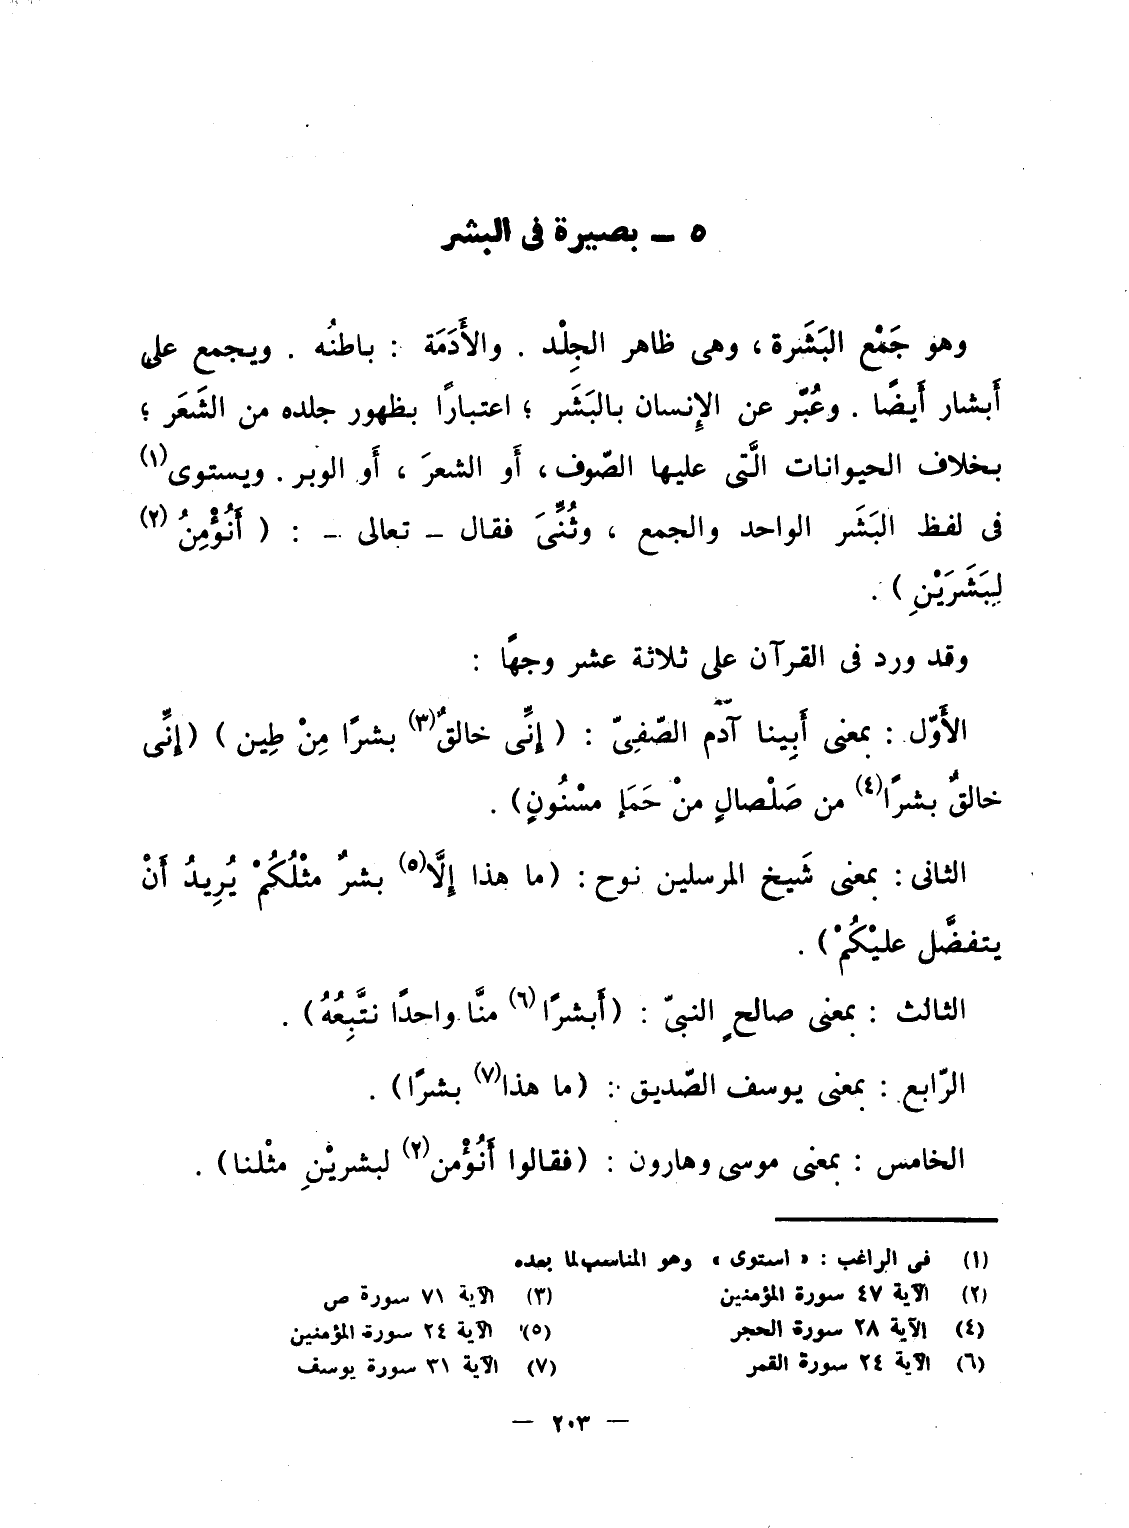 ٥ ــ بصيرة فى البشر
وهو جَمْع البَشَرة ، وهى ظاهر الجِلْد . والأَدَمَة : باطنُه . ويجمع على
أَبشار أَيضًا . وعُبّر عن الإِنسان بالبَشَر ؛ اعتبارًا بظهور جلده من الشَعَر ؛
بخلاف الحيوانات الَّتى عليها الصّوف ، أَو الشعرَ ، أَو الوبر . ويستوى(١)
فى لفظ البَشَر الواحد والجمع ، وثُنِّىَ فقال ــ تعالى ــ : ( أَنُؤْمِنُ (٢)
لِبَشَرَيْنِ ) .
وقد ورد فى القرآن على ثلاثة عشر وجهًا :
الأَوّل : بمعنى أَبِينا آدم الصّفِىّ : ( إِنِّى خالقٌ(٣) بشرًا مِنْ طِين ) (إِنِّى
خالقٌ بشرًا(٤) من صَلْصالٍ منْ حَمَإ مسْنُونٍ) .
الثانى : بمعنى شَيخ المرسلين نوح : (ما هذا إِلَّا(٥) بشرٌ مثْلُكُمْ يُرِيدُ أَنْ
يتفضَّل عليْكُمْ) .
الثالث : بمعنى صالحٍ النبىّ : (أَبشرًا (٦) منَّا واحدًا نتَّبِعُهُ) .
الرّابع : بمعنى يوسف الصّديق : (ما هذا(٧) بشرًا) .
الخامس : بمعنى موسى وهارون : (فقالوا أَنُؤْمن(٢) لبشريْنِ مثْلنا) .
(١) فى الراغب : « استوى » وهو المناسب لما بعده
(٢) الآية ٤٧ سورة المؤمنين (٣) الآية ٧١ سورة ص
(٤) الآية ٢٨ سورة الحجر (٥) الآية ٢٤ سورة المؤمنين
(٦) الآية ٢٤ سورة القمر (٧) الآية ٣١ سورة يوسف
— ٢٠٣ —